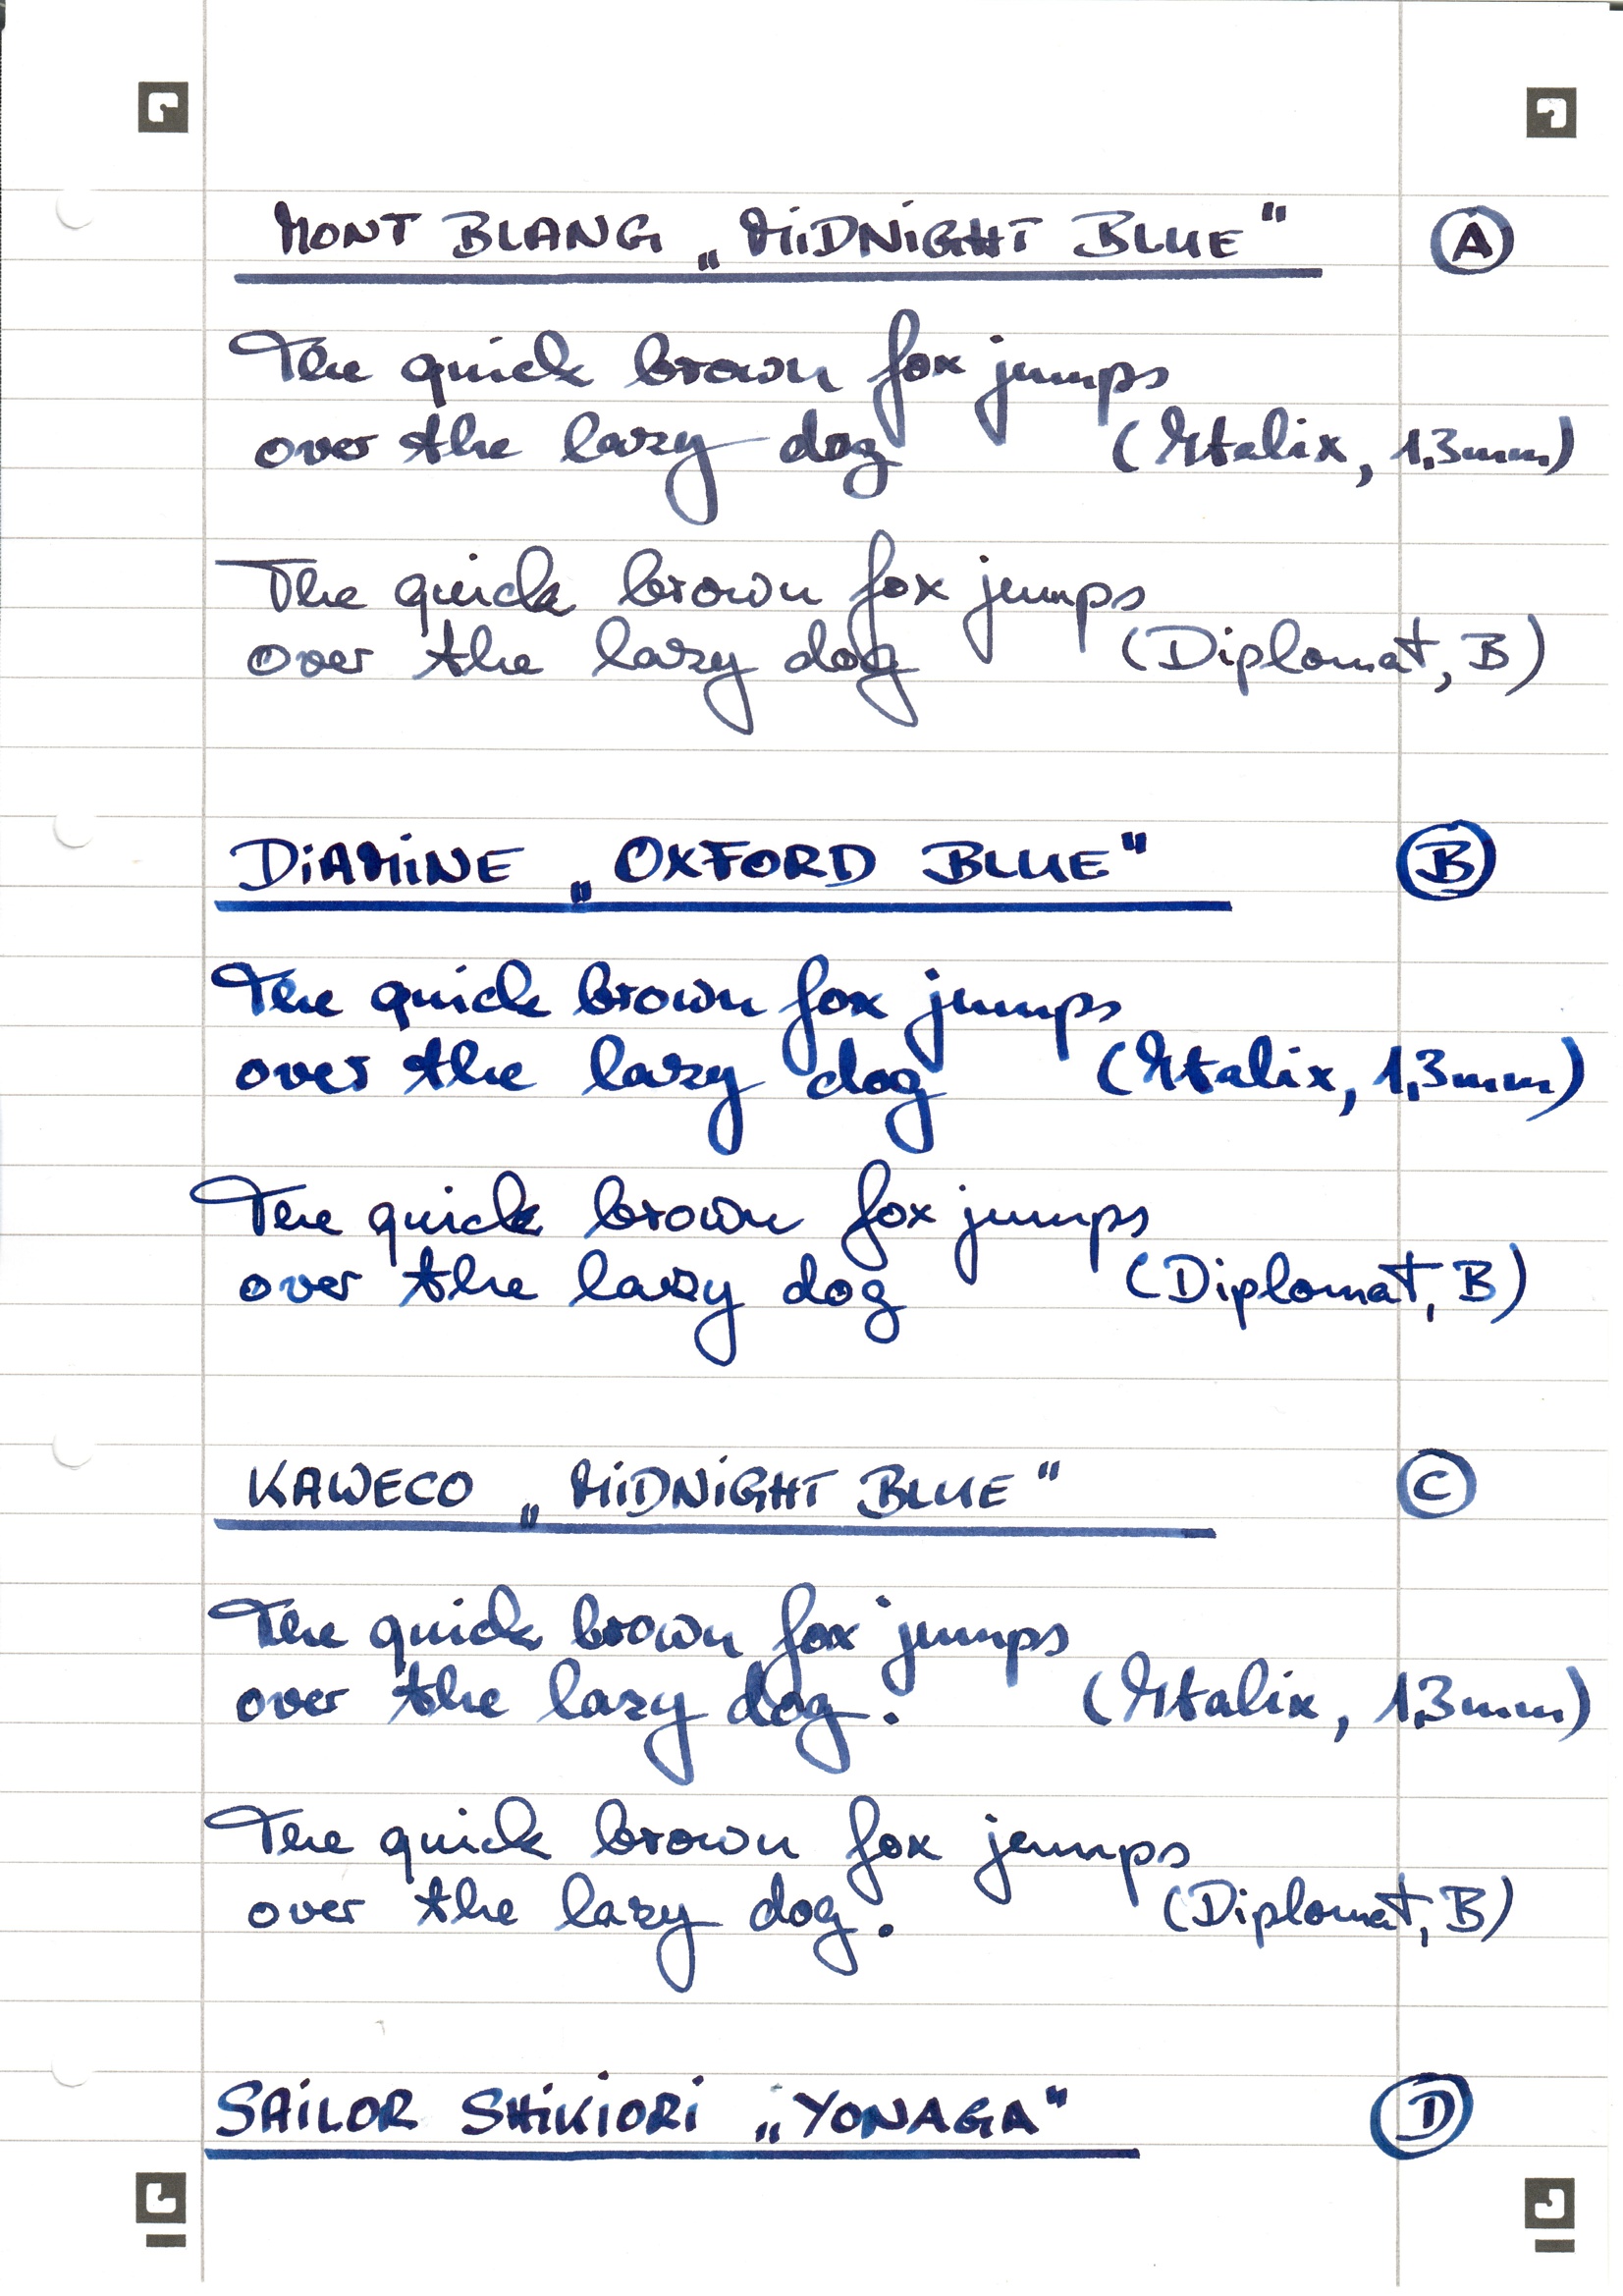 MONT BLANC „MIDNIGHT BLUE“ A
The quick brown fox jumps
over the lazy dog (Italix, 1.3mm)
The quick brown fox jumps
over the lazy dog (Diplomat, B)
DIAMINE „OXFORD BLUE“ B
The quick brown fox jumps
over the lazy dog (Italix, 1,3mm)
The quick brown fox jumps
over the lazy dog (Diplomat, B)
KAWECO „MIDNIGHT BLUE“ C
The quick brown fox jumps
over the lazy dog. (Italix, 1.3mm)
The quick brown fox jumps
over the lazy dog. (Diplomat, B)
SAILOR SHIKIORI „YONAGA“ D